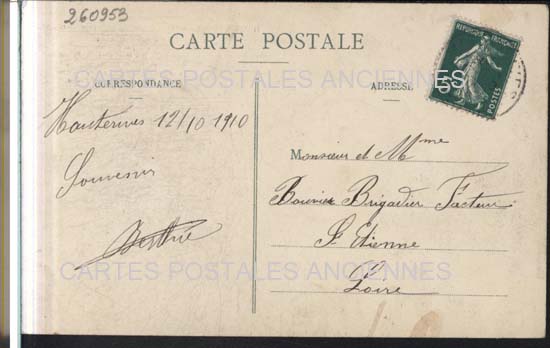 260953
CARTE POSTALE
CARTES POSTALES ANCIENNES
CORRESPONDANCE
ADRESSE
RÉPUBLIQUE FRANÇAISE
5
POSTES
Hauterives 12/10 1910
Souvenir
Monsieur et Mme
Bouvier Brigadier Facteur
St Etienne
Loire
CARTES POSTALES ANCIENNES